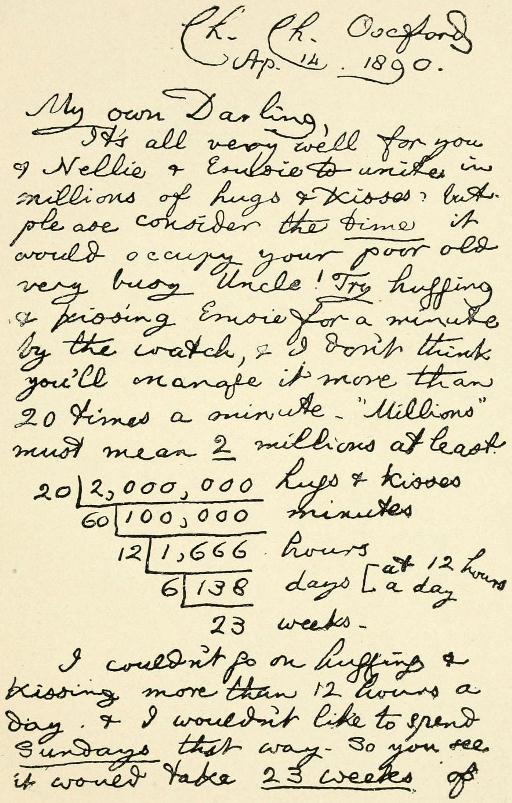 Ch. Ch. Oxford
Ap. 14. 1890.
My own Darling,
It's all very well for you
& Nellie & Emsie to unite in
millions of hugs & kisses: but
please consider the time it
would occupy your poor old
very busy Uncle! Try hugging
& kissing Emsie for a minute
by the watch, & I don't think
you'll manage it more than
20 times a minute. "Millions"
must mean 2 millions at least.
20 | 2,000,000 hugs & kisses
60 | 100,000 minutes
12 | 1,666 hours
6 | 138 days [at 12 hours
a day
23 weeks.
I couldn't go on hugging &
kissing more than 12 hours a
day. & I wouldn't like to spend
Sundays that way. So you see
it would take 23 weeks of